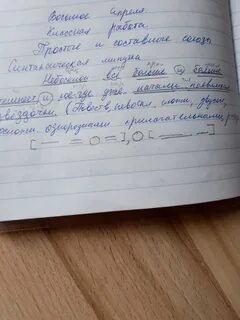 Восьмое апреля.
Классная работа.
Простые и составные союзы.
Синтаксическая минутка
Небесное всё больше и больше
темнеет и кое-где уже начали появляться
звёздочки. (Повеств, невоскл, сложн, двухс,
осложн. однородными прилагательными,
[— = O =], O [— =]